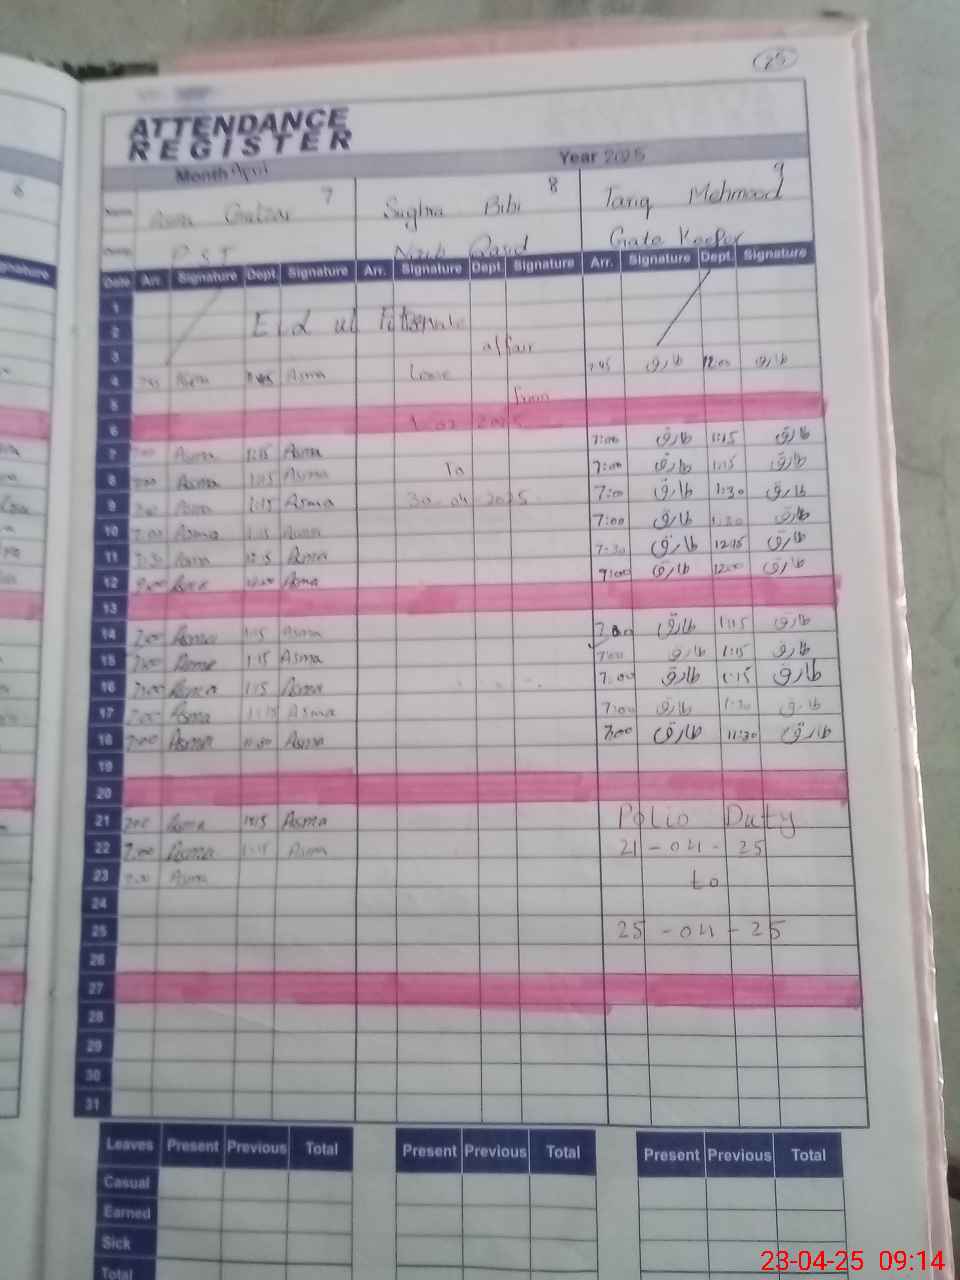 25
ATTENDANCE
REGISTER
Month April Year 2025
6 7 8 9
Name Sughra Bibi Tariq Mehmood
P.S.T Naib Qasid Gate Keeper
Date Arr. Signature Dept. Signature Arr. Signature Dept. Signature Arr. Signature Dept. Signature
1
2 Eid ul
3 affair
4 Asma Asma Leave 7:45 طارق 12:00 طارق
5 from
6 2025
7 Asma 1:15 Asma 7:00 طارق 1:15 طارق
8 7:00 Asma 1:15 Asma To 7:00 طارق 1:15 طارق
9 7:00 Asma 1:15 Asma 30-04-2025 7:00 طارق 1:30 طارق
10 7:00 Asma 1:15 Asma 7:00 طارق 1:30 طارق
11 7:30 Asma 12:15 Asma 7:30 طارق 12:15 طارق
12 9:00 Asma 12:00 Asma 9:00 طارق 12:00 طارق
13
14 7:00 Asma 1:15 Asma 7:00 طارق 1:15 طارق
15 7:00 Asma 1:15 Asma 7:00 طارق 1:15 طارق
16 7:00 Asma 1:15 Asma 7:00 طارق 1:15 طارق
17 7:00 Asma 1:15 Asma 7:00 طارق 1:30 طارق
18 7:00 Asma 11:30 Asma 7:00 طارق 11:30 طارق
19
20
21 7:00 Asma 1:15 Asma Polio Duty
22 7:00 Asma 1:15 Asma 21-04-25
23 7:00 Asma to
24
25 25-04-25
26
27
28
29
30
31
Leaves Present Previous Total Present Previous Total Present Previous Total
Casual
Earned
Sick
Total
23-04-25 09:14